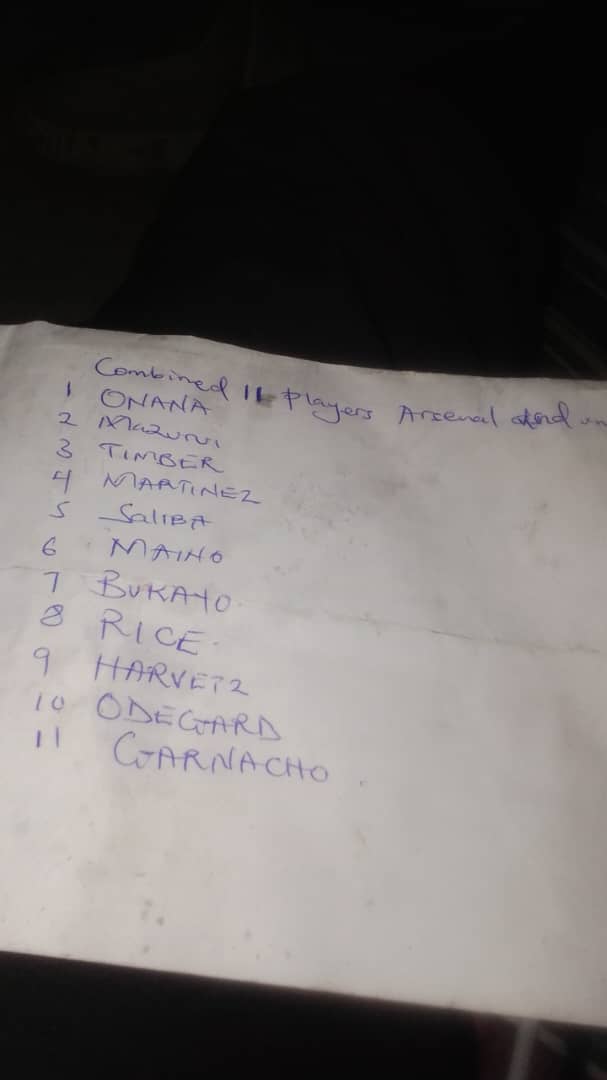 Combined 11 Players Arsenal and un
1 ONANA
2 Mazurui
3 TIMBER
4 MARTINEZ
5 SALIBA
6 MAINO
7 BUKAYO
8 RICE
9 HARVETZ
10 ODEGARD
11 GARNACHO